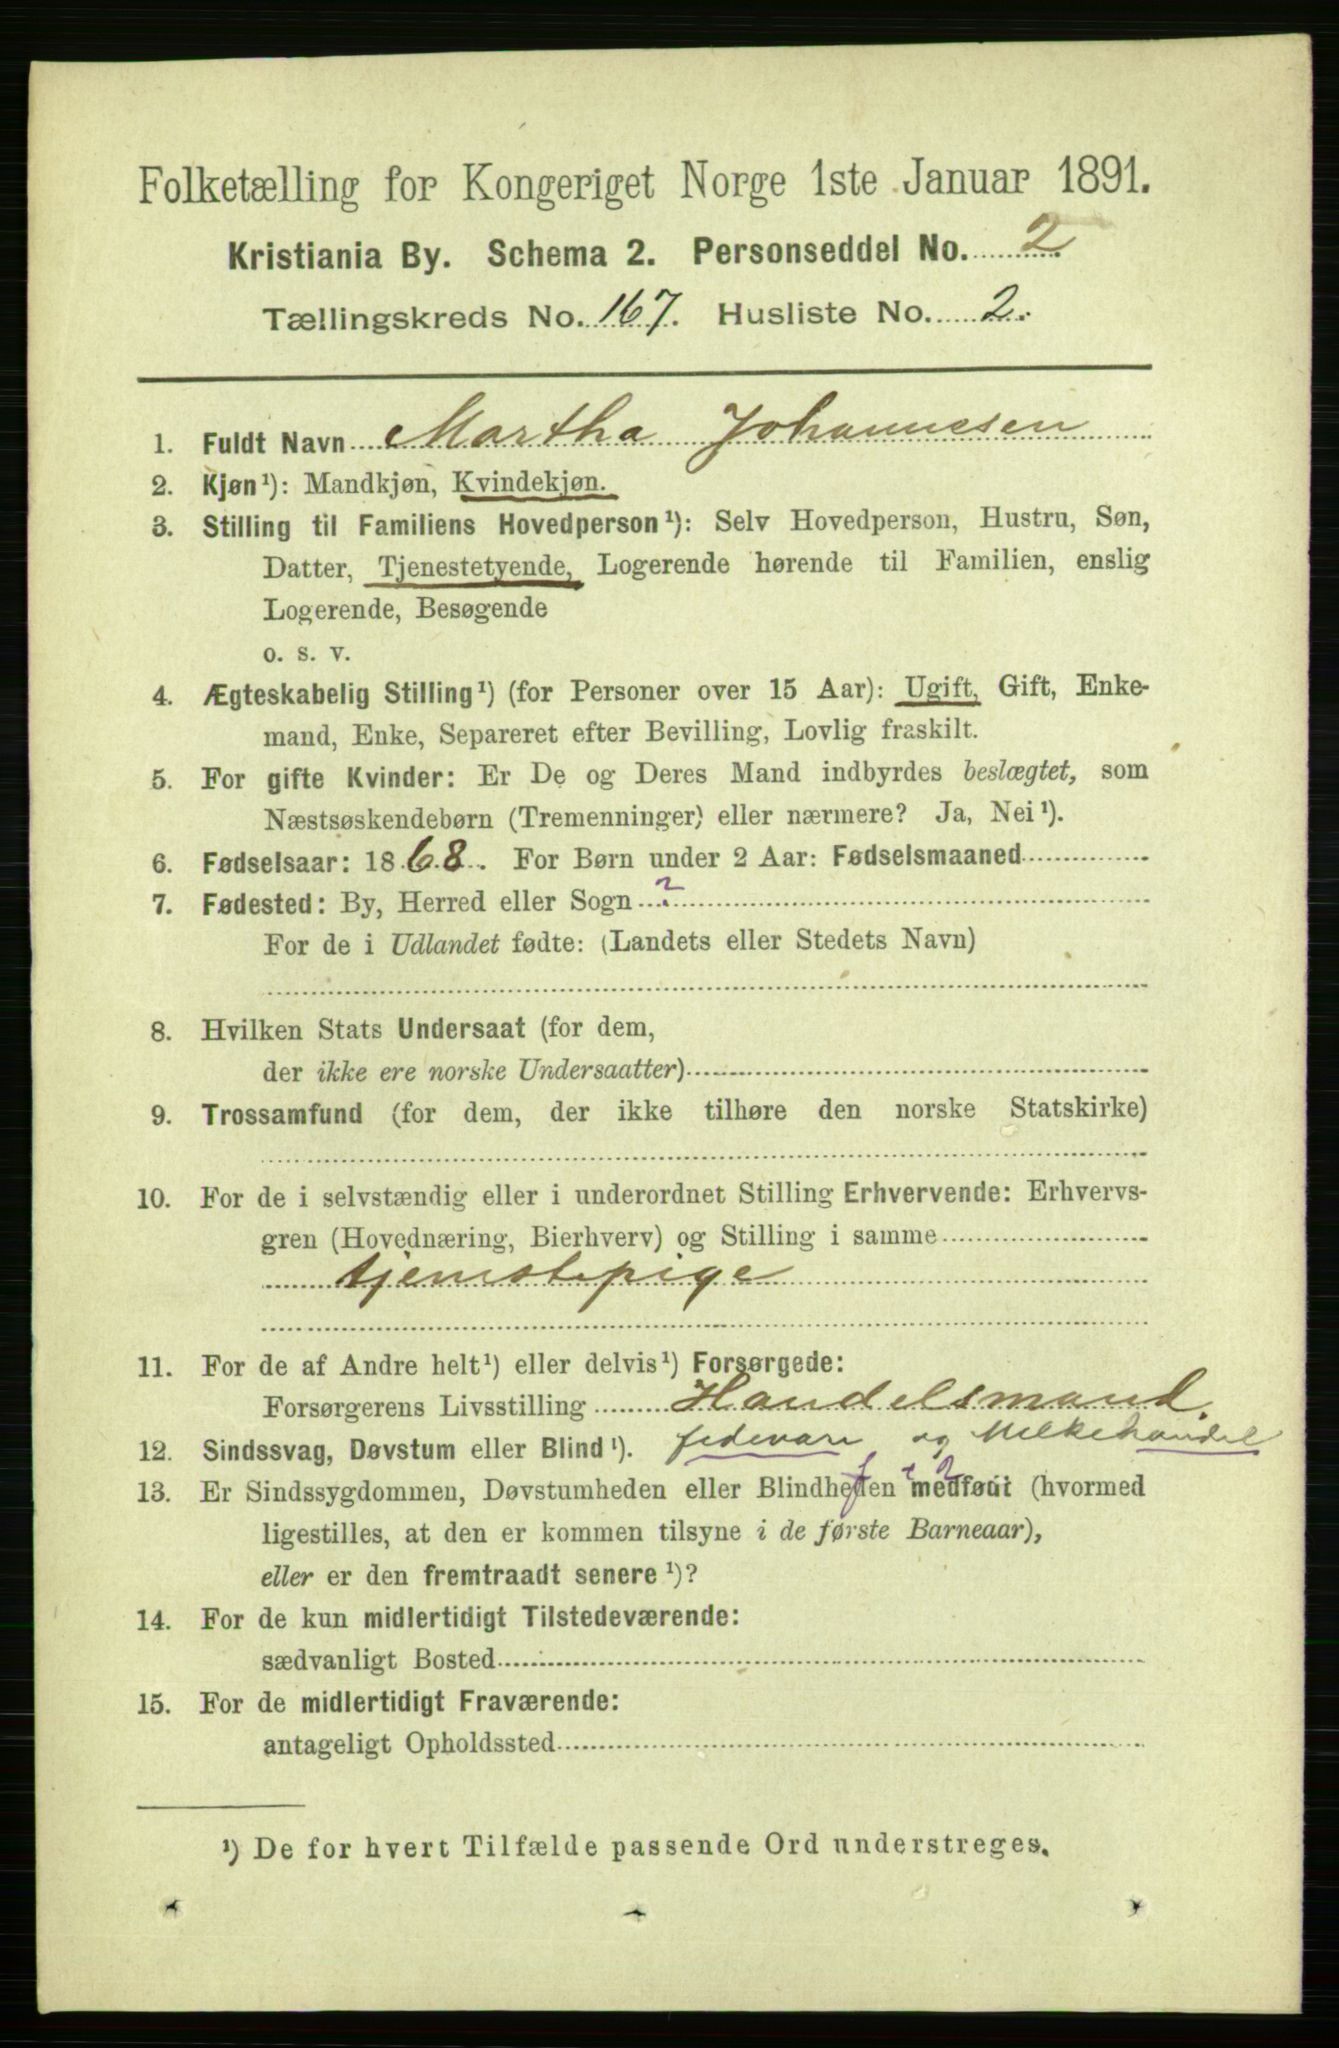 Folketælling for Kongeriget Norge 1ste Januar 1891.
Kristiania By. Schema 2. Personseddel No. 2
Tællingskreds No. 167. Husliste No. 2.
1. Fuldt Navn Martha Johannesen
2. Kjøn¹): Mandkjøn, Kvindekjøn.
3. Stilling til Familiens Hovedperson¹): Selv Hovedperson, Hustru, Søn,
Datter, Tjenestetyende, Logerende hørende til Familien, enslig
Logerende, Besøgende
o. s. v.
4. Ægteskabelig Stilling¹) (for Personer over 15 Aar): Ugift, Gift, Enke-
mand, Enke, Separeret efter Bevilling, Lovlig fraskilt.
5. For gifte Kvinder: Er De og Deres Mand indbyrdes beslægtet, som
Næstsøskendebørn (Tremenninger) eller nærmere? Ja, Nei¹).
6. Fødselsaar: 1868. For Børn under 2 Aar: Fødselsmaaned
7. Fødested: By, Herred eller Sogn ?
For de i Udlandet fødte: (Landets eller Stedets Navn)
8. Hvilken Stats Undersaat (for dem,
der ikke ere norske Undersaatter)
9. Trossamfund (for dem, der ikke tilhøre den norske Statskirke)
10. For de i selvstændig eller i underordnet Stilling Erhvervende: Erhvervs-
gren (Hovednæring, Bierhverv) og Stilling i samme
tjenstepige
11. For de af Andre helt¹) eller delvis¹) Forsørgede:
Forsørgerens Livsstilling Handelsmand.
12. Sindssvag, Døvstum eller Blind¹). fedevare og Melkehandel
13. Er Sindssygdommen, Døvstumheden eller Blindheden medfødt (hvormed
ligestilles, at den er kommen tilsyne i de første Barneaar),
eller er den fremtraadt senere¹)?
14. For de kun midlertidigt Tilstedeværende:
sædvanligt Bosted
15. For de midlertidigt Fraværende:
antageligt Opholdssted
¹) De for hvert Tilfælde passende Ord understreges.